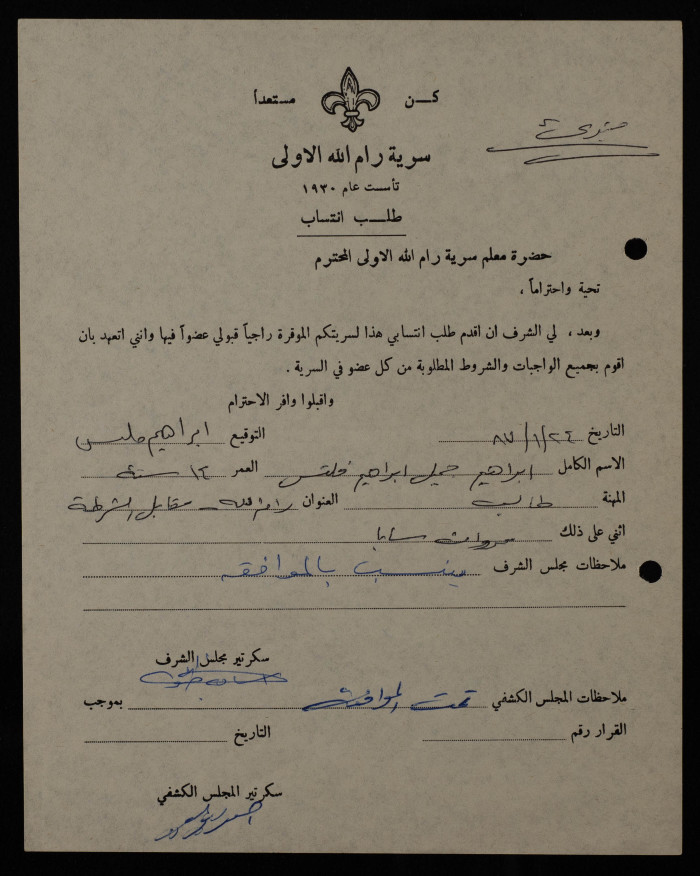 كن مستعدا
سرية رام الله الاولى
تأسست عام ١٩٣٠
طلب انتساب
حضرة معلم سرية رام الله الاولى المحترم
تحية واحتراماً ،
وبعد ، لي الشرف ان اقدم طلب انتسابي هذا لسريتكم الموقرة راجياً قبولي عضواً فيها وانني اتعهد بان
اقوم بجميع الواجبات والشروط المطلوبة من كل عضو في السرية .
واقبلوا وافر الاحترام
التاريخ ٢٤/١/٨٧ التوقيع ابراهيم
الاسم الكامل ابراهيم جميل ابراهيم العمر ١٤ سنة
المهنة طالب العنوان رام الله - مقابل الشرطة
اثني على ذلك مروان سابا
ملاحظات مجلس الشرف ينسب بالموافقة
سكرتير مجلس الشرف
ملاحظات المجلس الكشفي تمت الموافقة بموجب
القرار رقم التاريخ
سكرتير المجلس الكشفي